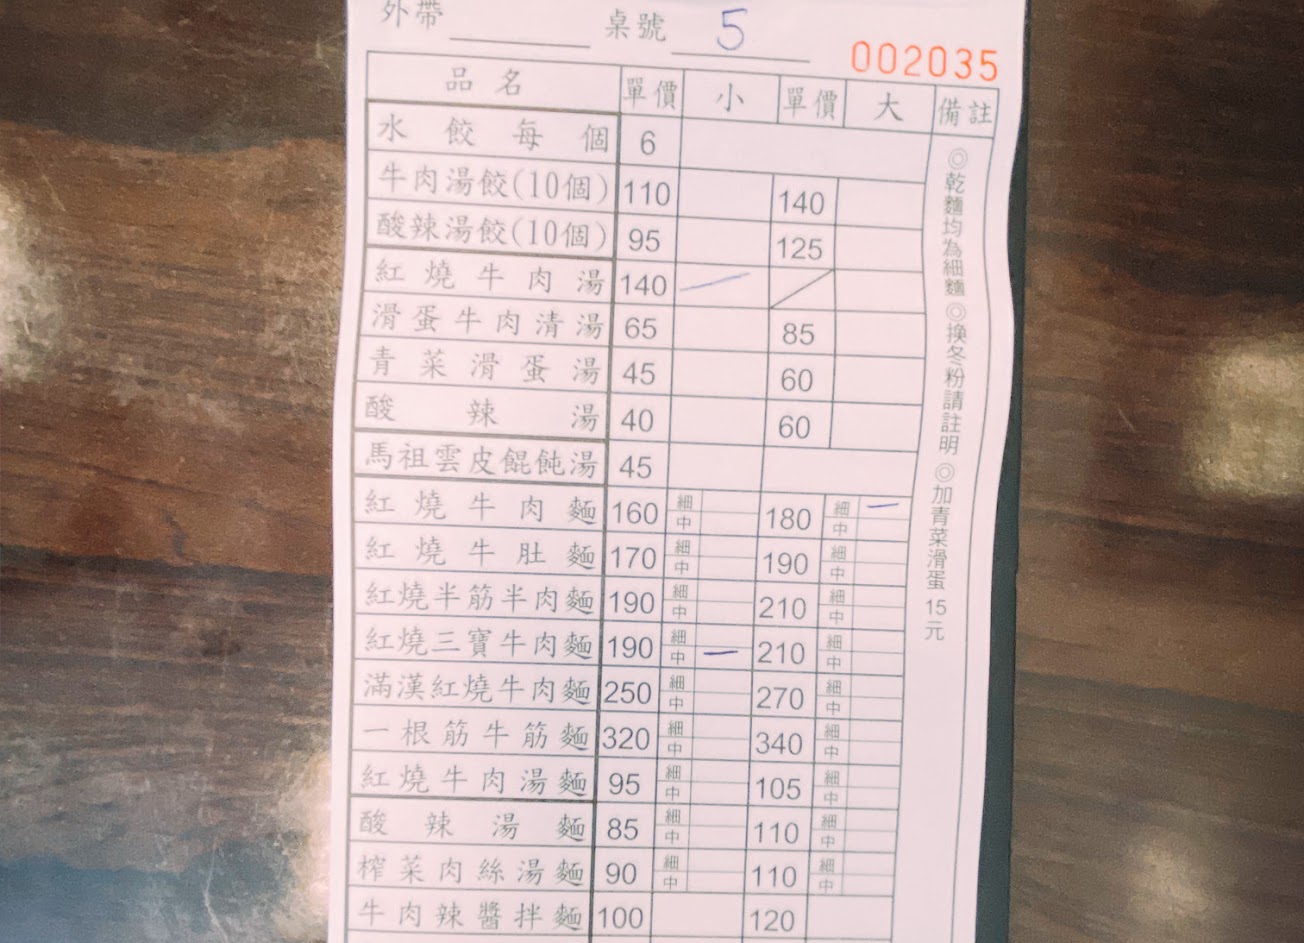 外帶 桌號 5
002035
品名 單價 小 單價 大 備註
水餃每個 6
牛肉湯餃(10個) 110 140
酸辣湯餃(10個) 95 125
紅燒牛肉湯 140
滑蛋牛肉清湯 65 85
青菜滑蛋湯 45 60
酸辣湯 40 60
馬祖雲皮餛飩湯 45
紅燒牛肉麵 160 細 中 180 細 中
紅燒牛肚麵 170 細 中 190 細 中
紅燒半筋半肉麵 190 細 中 210 細 中
紅燒三寶牛肉麵 190 細 中 210 細 中
滿漢紅燒牛肉麵 250 細 中 270 細 中
一根筋牛筋麵 320 細 中 340 細 中
紅燒牛肉湯麵 95 細 中 105 細 中
酸辣湯麵 85 細 中 110 細 中
榨菜肉絲湯麵 90 細 中 110 細 中
牛肉辣醬拌麵 100 120
◎乾麵均為細麵◎換冬粉請註明◎加青菜滑蛋15元